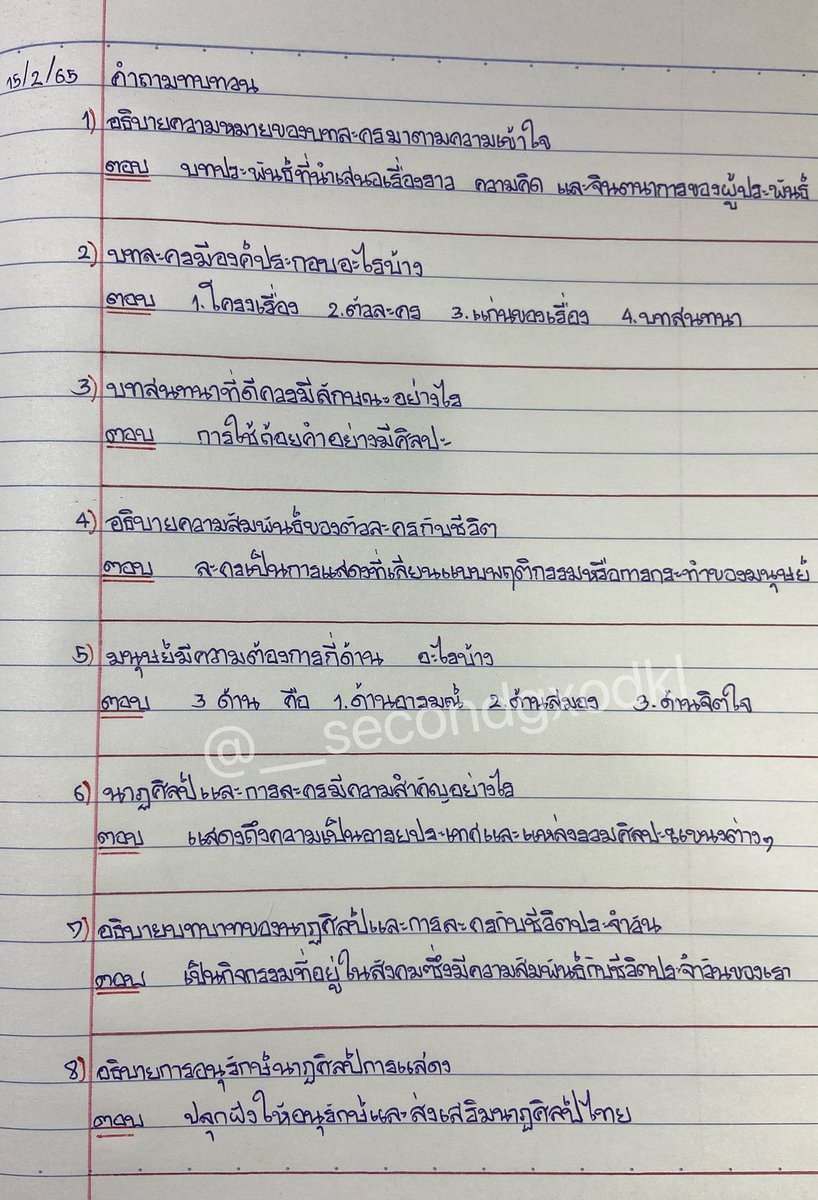 15/2/65 คำถามทบทวน
1) อธิบายความหมายของบทละครมาตามความเข้าใจ
ตอบ บทประพันธ์ที่นำเสนอเรื่องราว ความคิด และจินตนาการของผู้ประพันธ์
2) บทละครมีองค์ประกอบอะไรบ้าง
ตอบ 1.โครงเรื่อง 2.ตัวละคร 3.แก่นของเรื่อง 4.บทสนทนา
3) บทสนทนาที่ดีควรมีลักษณะอย่างไร
ตอบ การใช้ถ้อยคำอย่างมีศิลปะ
4) อธิบายความสัมพันธ์ของตัวละครกับชีวิต
ตอบ ละครเป็นการแสดงที่เลียนแบบพฤติกรรมหรือการกระทำของมนุษย์
5) มนุษย์มีความต้องการกี่ด้าน อะไรบ้าง
ตอบ 3 ด้าน คือ 1.ด้านอารมณ์ 2.ด้านสมอง 3.ด้านจิตใจ
@__secondgxodkl
6) นาฏศิลป์และการละครมีความสำคัญอย่างไร
ตอบ แสดงถึงความเป็นอารยประเทศและแหล่งรวมศิลปะแขนงต่างๆ
7) อธิบายบทบาทของนาฏศิลป์และการละครกับชีวิตประจำวัน
ตอบ เป็นกิจกรรมที่อยู่ในสังคมซึ่งมีความสัมพันธ์กับชีวิตประจำวันของเรา
8) อธิบายการอนุรักษ์นาฏศิลป์การแสดง
ตอบ ปลุกฝังให้อนุรักษ์และส่งเสริมนาฏศิลป์ไทย